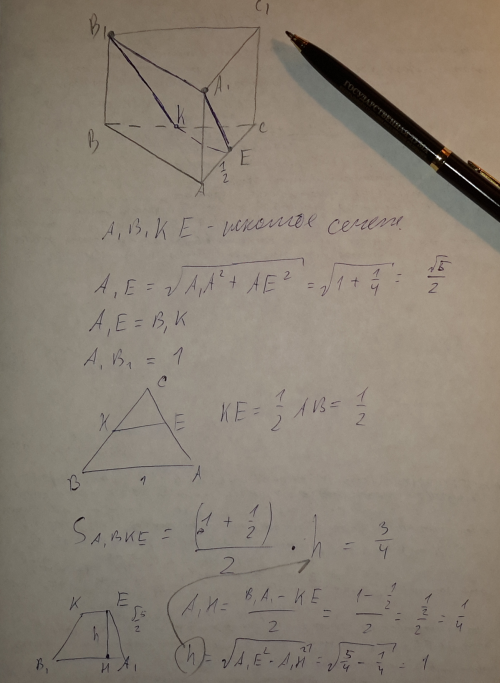 C₁
B₁
A₁
K
B
C
E
1/2
A
ГОСУДАРСТВЕННАЯ
A₁B₁KE - искомое сечение.
A₁E = √(A₁A² + AE²) = √(1 + 1/4) = √5/2
A₁E = B₁K
A₁B₁ = 1
C
K E
B 1 A
KE = 1/2 AB = 1/2
S A₁BKE = (1 + 1/2)/2 · h = 3/4
K E √5/2
h
B₁ H A₁
A₁H = (B₁A₁ - KE)/2 = (1 - 1/2)/2 = (1/2)/2 = 1/4
h = √(A₁E² - A₁H²) = √(5/4 - 1/4) = 1